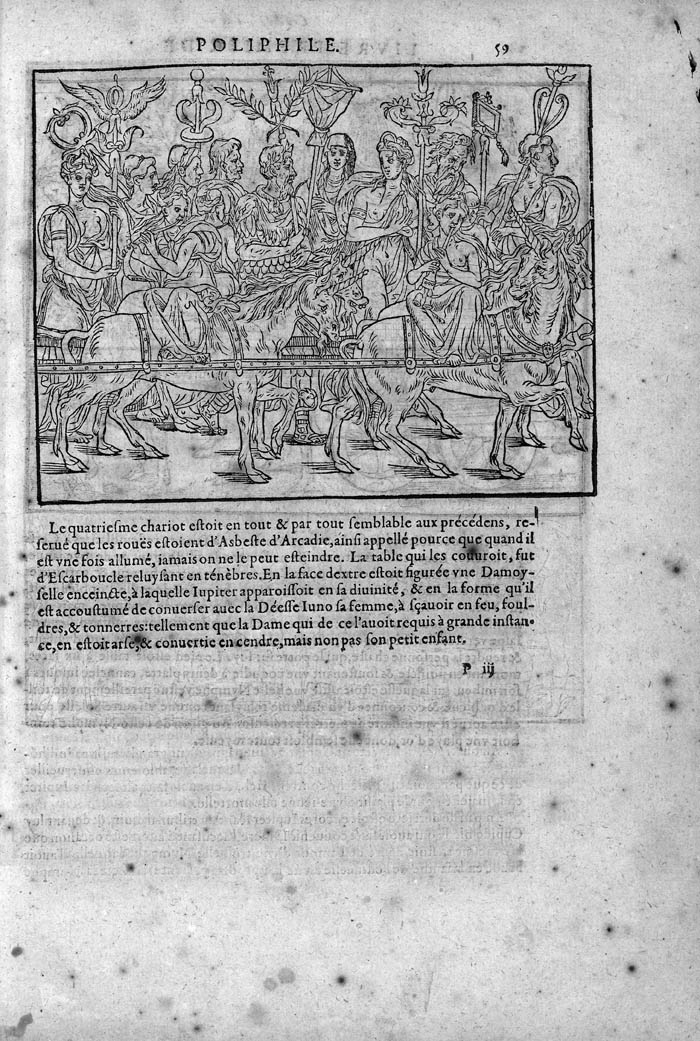 POLIPHILE. 59
Le quatrieſme chariot eſtoit en tout & par tout ſemblable aux précédens, re-
ſerué que les rouës eſtoient d'Asbeſte d'Arcadie, ainſi appellé pource que quand il
eſt vne fois allumé, iamais on ne le peut eſteindre. La table qui les couuroit, fut
d'Eſcarboucle reluyſant en ténèbres. En la face dextre eſtoit figurée vne Damoy-
ſelle enceincte, à laquelle Iupiter apparoiſſoit en ſa diuinité, & en la forme qu'il
eſt accouſtumé de conuerſer auec la Déeſſe Iuno ſa femme, à ſçauoir en feu, foul-
dres, & tonnerres: tellement que la Dame qui de ce l'auoit requis à grande inſtan-
ce, en eſtoit arſe, & conuertie en cendre, mais non pas ſon petit enfant.
P iij